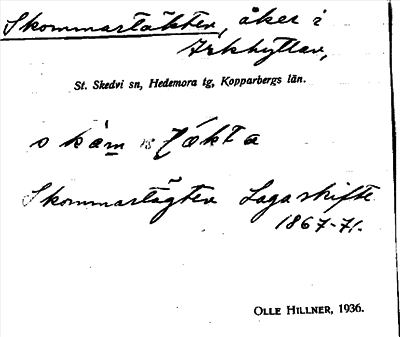 Skommartäkten, åker i
Arkhyttan,
St. Skedvi sn, Hedemora tg, Kopparbergs län.
skàm
Skommartägten Laga skifte
1867-71.
OLLE HILLNER, 1936.